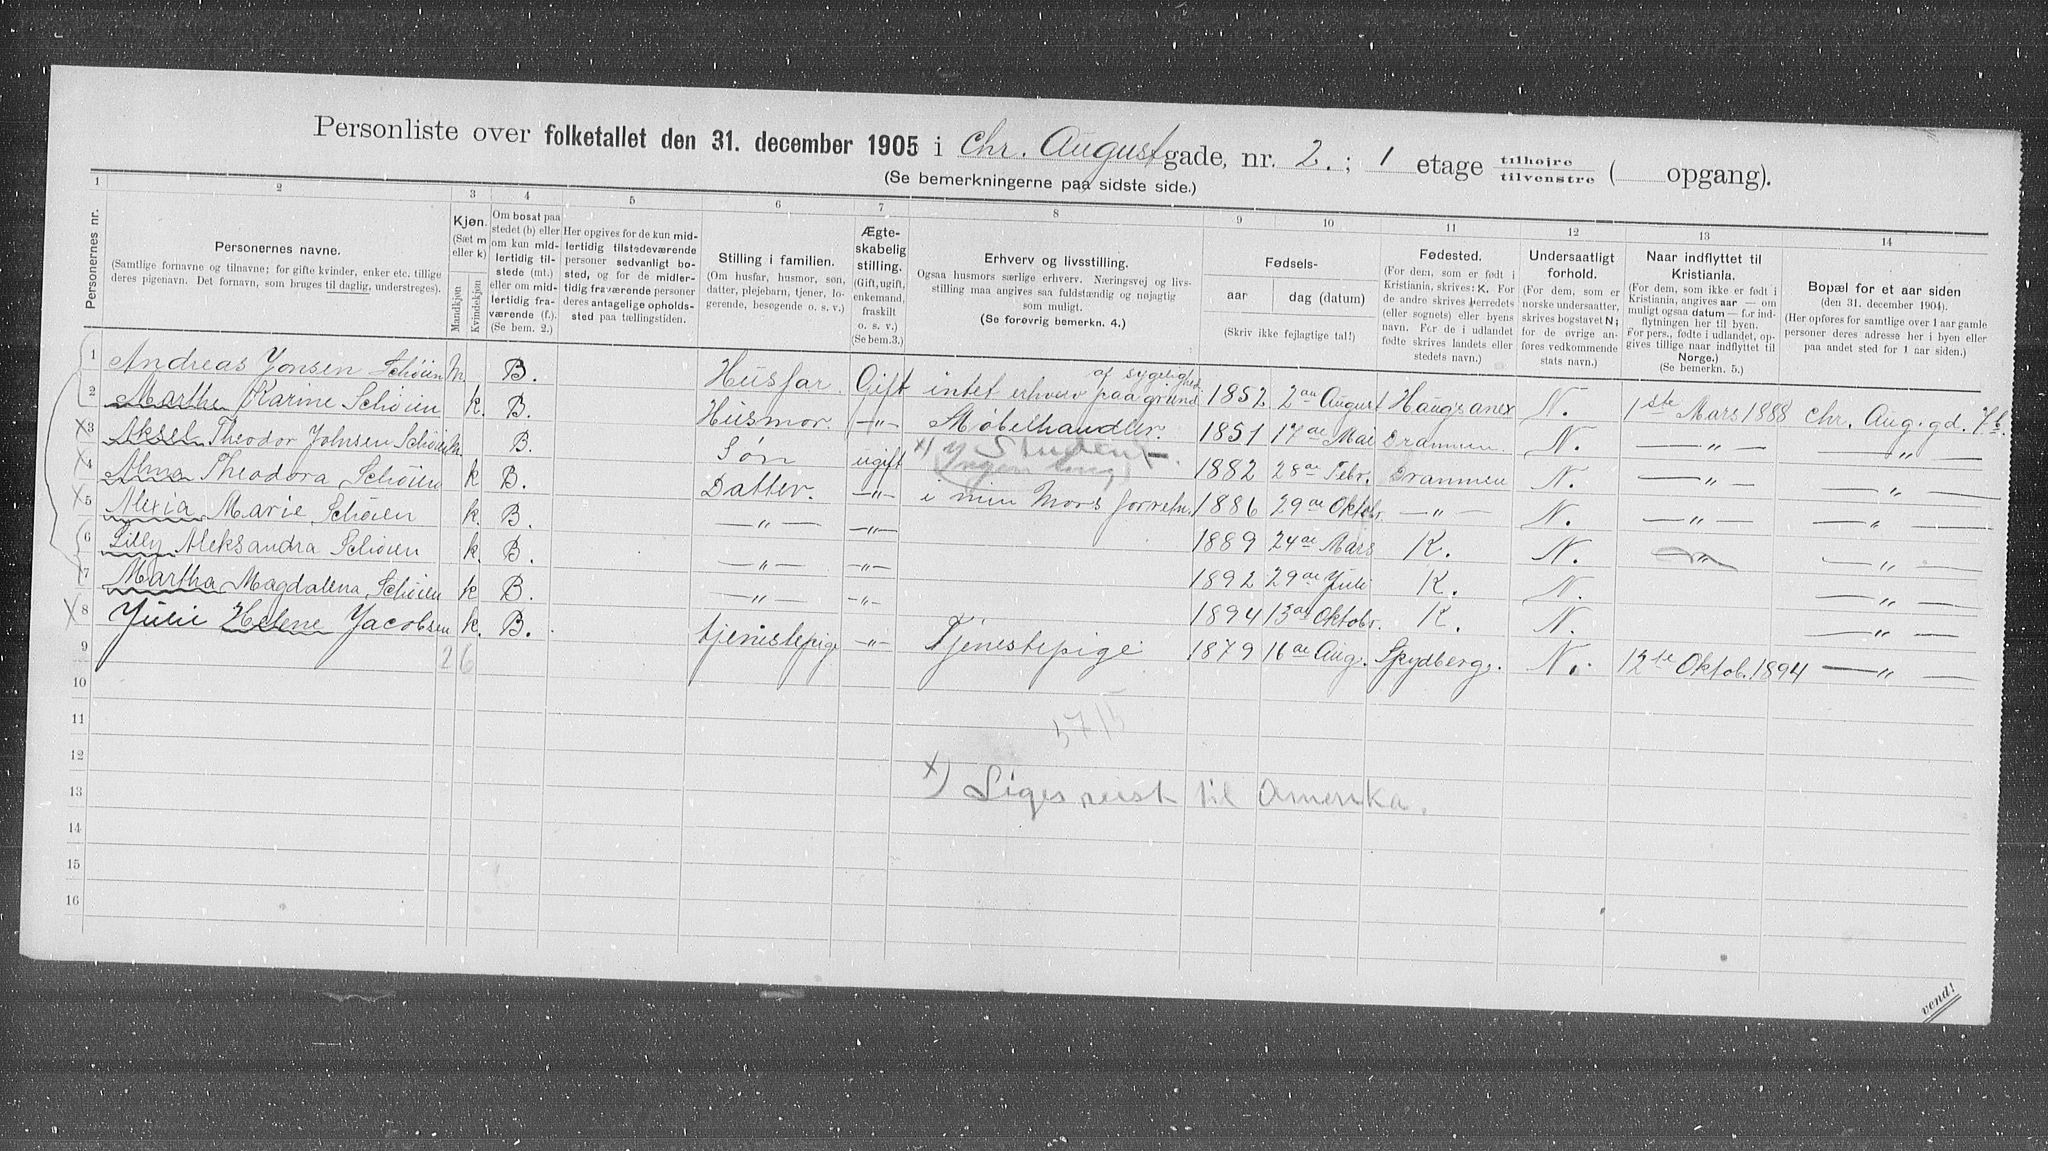 Personliste over folketallet den 31. december 1905 i Chr. August gade, nr. 2. ; 1 etage tilhøjre tilvenstre ( opgang).
(Se bemerkningerne paa sidste side.)
1 2 3 4 5 6 7 8 9 10 11 12 13 14
Personernes nr.
Personernes navne.
(Samtlige fornavne og tilnavne; for gifte kvinder, enker etc. tillige
deres pigenavn. Det fornavn, som bruges til daglig, understreges).
Kjøn.
(Sæt m
eller k)
Mandkjøn
Kvindekjøn
Om bosat paa
stedet (b) eller
om kun mid-
lertidig til-
stede (mt.)
eller om mid-
lertidig fra-
værende (f.).
(Se bem. 2.)
Her opgives for de kun mid-
lertidig tilstedeværende
personer sedvanligt bo-
sted, og for de midler-
tidig fraværende personer
deres antagelige opholds-
sted paa tællingstiden.
Stilling i familien.
(Om husfar, husmor, søn,
datter, plejebarn, tjener, lo-
gerende, besøgende o. s. v.)
Ægte-
skabelig
stilling.
(Gift, ugift,
enkemand,
fraskilt
o. s. v.)
(Se bem.3.)
Erhverv og livsstilling.
Ogsaa husmors særlige erhverv. Næringsvej og livs-
stilling maa angives saa fuldstændig og nøjagtig
som muligt.
(Se forøvrig bemerkn. 4.)
Fødsels-
aar
dag (datum)
(Skriv ikke fejlagtige tal!)
Fødested.
(For dem, som er født i
Kristiania, skrives: K. For
de andre skrives herredets
(eller sognets) eller byens
navn. For de i udlandet
fødte skrives landets eller
stedets navn.)
Undersaatligt
forhold.
(For dem, som er
norske undersaatter,
skrives bogstavet N;
for de øvrige an-
føres vedkommende
stats navn.)
Naar indflyttet til
Kristiania.
(For dem, som ikke er født i
Kristiania, angives aar — om
muligt ogsaa datum — for ind-
flytningen her til byen.
For pers., fødte i udlandet, op-
gives tillige naar indflyttet til
Norge.)
(Se bemerkn. 5.)
Bopæl for et aar siden
(den 31. december 1904).
(Her opføres for samtlige over 1 aar gamle
personer deres adresse her i byen eller
paa andet sted for 1 aar siden.)
1 Andreas Jonsen Schøien M B. Husfar Gift intet erhverv paa grund af sygelighed. 1852. 2den August Haugsanex N. 1ste Mars 1888 Chr. Aug. gd. 7b.
2 Marthe Karine Schøien k. B. Husmor —"— Møbelhandler. 1851 17de Mai Drammen N. —"— —"—
X 3 Aksel Theodor Johnsen Schøien m. B. Søn ugift x) Student 1882 28de Febr. Drammen N. —"— —"—
X 4 Alma Theodora Schøien k B. Datter. —"— i min Mors forretn. 1886 29de Oktobr. —"— N. —"— —"—
X 5 Alexia Marie Schøien k. B. —"— —"— 1889 24de Mars K. N. —"— —"—
6 Lilly Aleksandra Schøien k. B. —"— —"— 1892 29de Juli K. N. —"—
7 Martha Magdalena Schøien k B. —"— —"— 1894 13de Oktobr. K. N. —"—
X 8 Julie Helene Jacobsen k. B. tjenestepige —"— Tjenestepige 1879 16de Aug. Spydberg. N. 12te Oktob. 1894 —"—
9 2 6
10
11
12
x) Siges reist til Amerika.
13
14
15
16
vend!